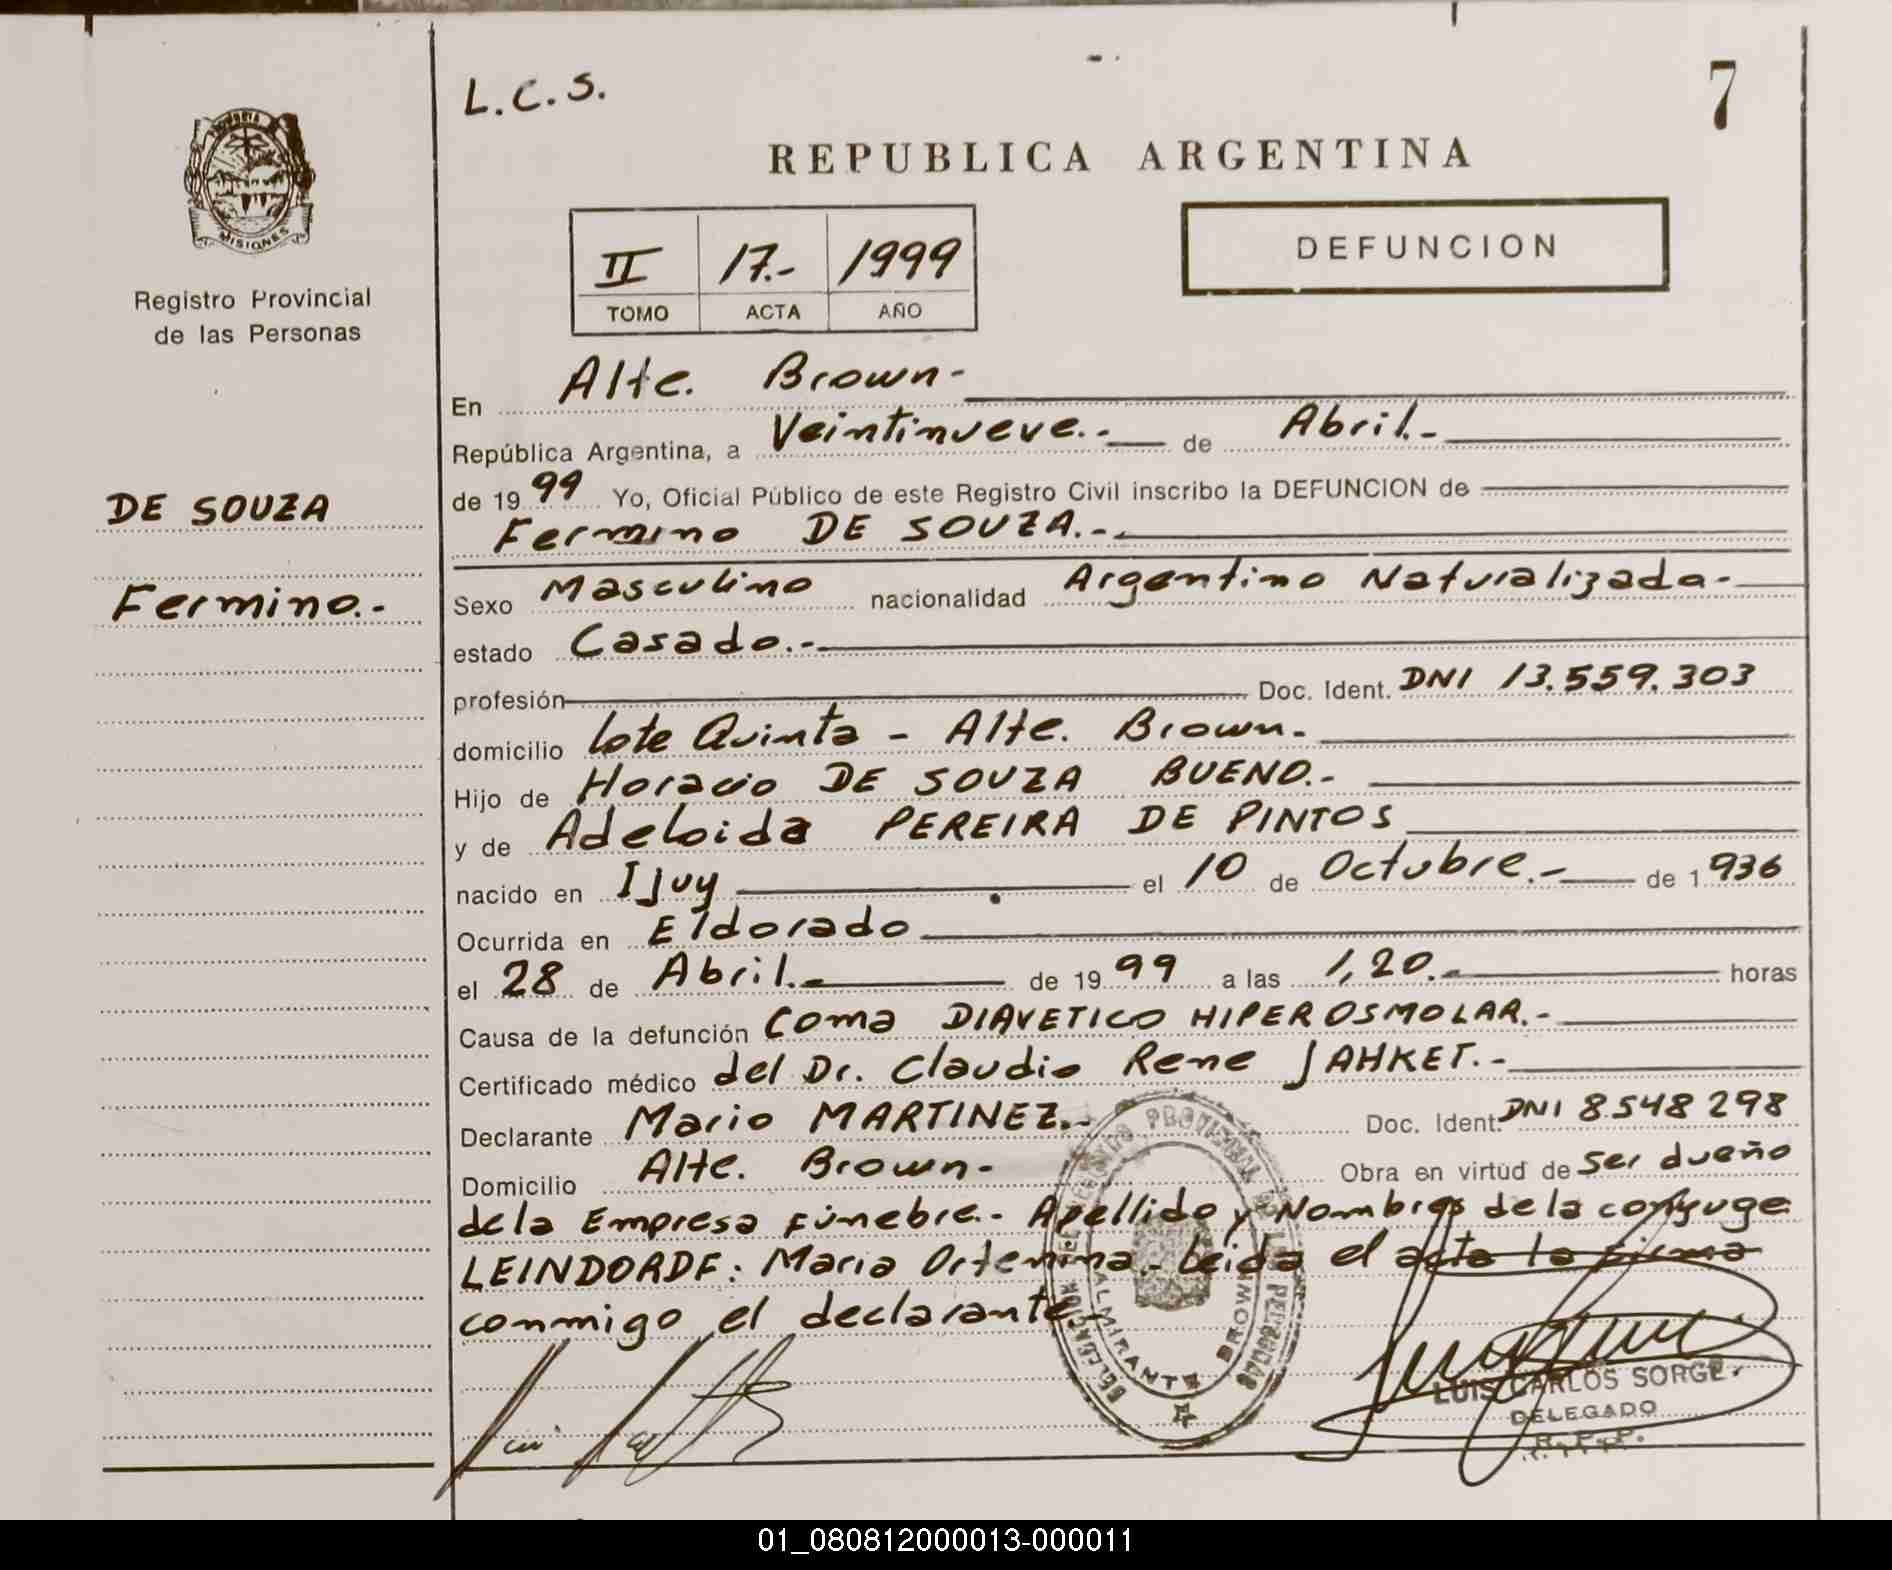 L.C.S.
7
REPUBLICA ARGENTINA
MISIONES
Registro Provincial
de las Personas
II 17.- 1999
TOMO ACTA AÑO
DEFUNCION
En Alte. Brown-
República Argentina, a Veintinueve.- de Abril.-
de 1999 Yo, Oficial Público de este Registro Civil inscribo la DEFUNCION de
DE SOUZA
Fermino.-
Fermino DE SOUZA.-
Sexo Masculino nacionalidad Argentino Naturalizada-
estado Casado.-
profesión Doc. Ident. DNI 13.559.303
domicilio Lote Quinta - Alte. Brown.-
Hijo de Horacio DE SOUZA BUENO.-
y de Adeloida PEREIRA DE PINTOS
nacido en Ijuy el 10 de Octubre.- de 1936
Ocurrida en Eldorado
el 28 de Abril.- de 1999 a las 1,20.- horas
Causa de la defunción Coma DIAVETICO HIPEROSMOLAR.-
Certificado médico del Dr. Claudio Rene JAHKET.-
Declarante Mario MARTINEZ.- Doc. Ident. DNI 8.548298
Domicilio Alte. Brown- Obra en virtud de ser dueño
de la Empresa Fúnebre.- Apellido y Nombres de la conyuge
LEINDORDF: Maria Ortemina.- Leida el acta la firma
conmigo el declarante-
ALMIRANTE BROWN
LUIS CARLOS SORGE
DELEGADO
R. P. P.
01_080812000013-000011